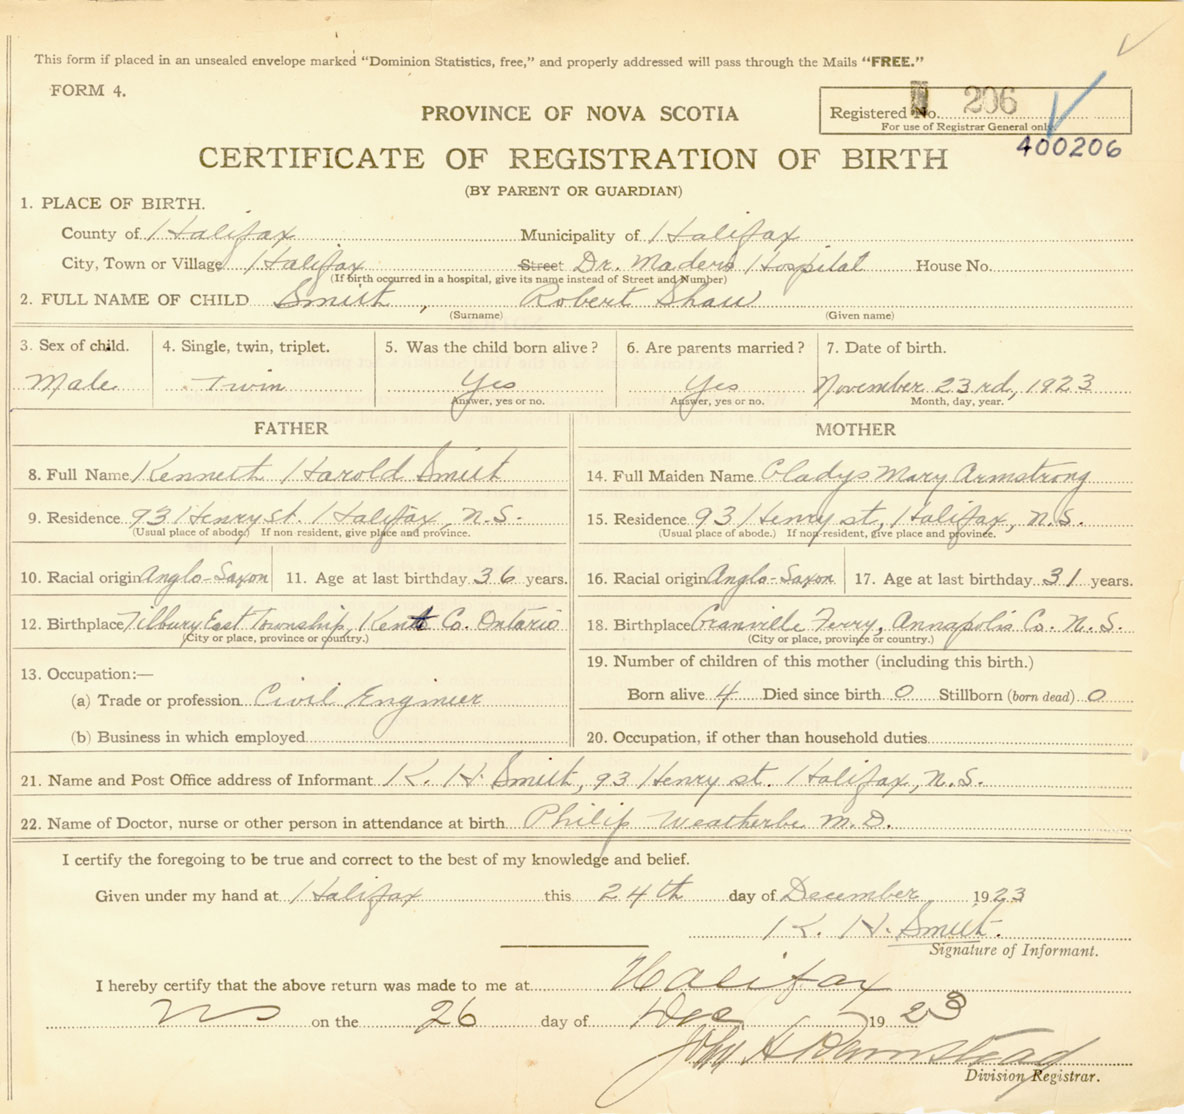 This form if placed in an unsealed envelope marked "Dominion Statistics, free," and properly addressed will pass through the Mails "FREE."
FORM 4.
PROVINCE OF NOVA SCOTIA
Registered No. 206
For use of Registrar General only.
400206
CERTIFICATE OF REGISTRATION OF BIRTH
(BY PARENT OR GUARDIAN)
1. PLACE OF BIRTH.
County of Halifax Municipality of Halifax
City, Town or Village Halifax Street Dr. Maders Hospital House No.
(If birth occurred in a hospital, give its name instead of Street and Number)
2. FULL NAME OF CHILD Smith, Robert Shaw
(Surname) (Given name)
3. Sex of child. 4. Single, twin, triplet. 5. Was the child born alive? 6. Are parents married? 7. Date of birth.
Male Twin Yes Yes November 23rd, 1923
Answer, yes or no. Answer, yes or no. Month, day, year.
FATHER MOTHER
8. Full Name Kenneth Harold Smith 14. Full Maiden Name Gladys Mary Armstrong
9. Residence 93 Henry st. Halifax, N.S. 15. Residence 93 Henry st, Halifax, N.S.
(Usual place of abode.) If non-resident, give place and province. (Usual place of abode.) If non-resident, give place and province.
10. Racial origin Anglo-Saxon 11. Age at last birthday 36 years. 16. Racial origin Anglo-Saxon 17. Age at last birthday 31 years.
12. Birthplace Tilbury East Township, Kent Co. Ontario 18. Birthplace Granville Ferry, Annapolis Co. N.S.
(City or place, province or country.) (City or place, province or country.)
13. Occupation:— 19. Number of children of this mother (including this birth.)
(a) Trade or profession Civil Engineer Born alive 4 Died since birth 0 Stillborn (born dead) 0
(b) Business in which employed 20. Occupation, if other than household duties
21. Name and Post Office address of Informant K. H. Smith, 93 Henry st. Halifax, N.S.
22. Name of Doctor, nurse or other person in attendance at birth Philip Weatherbe M.D.
I certify the foregoing to be true and correct to the best of my knowledge and belief.
Given under my hand at Halifax this 24th day of December 1923
K. H. Smith.
Signature of Informant.
I hereby certify that the above return was made to me at Halifax
NS on the 26 day of Dec 1923
John H Barnstead
Division Registrar.